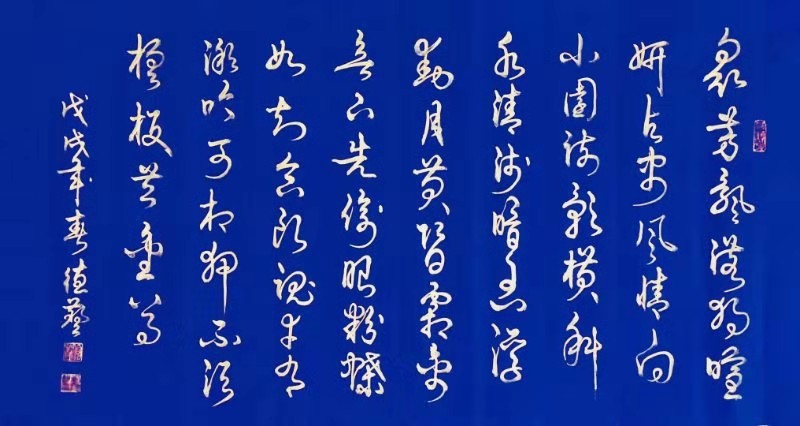 衆芳飘落独暄
妍占尽风情向
小園疏影横斜
水清浅暗香浮
動月黄昏霜禽
欲下先偷眼粉蝶
如知合断魂幸有
微吟可相狎不须
檀板共金尊
戊戌年春德艺